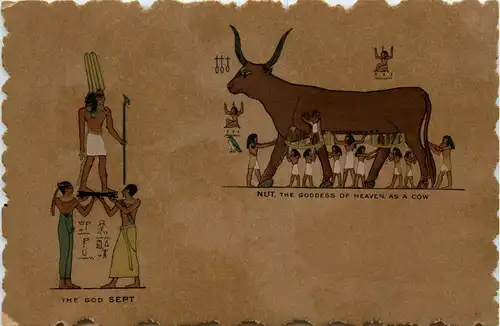 NUT, THE GODDESS OF HEAVEN, AS A COW
THE GOD SEPT